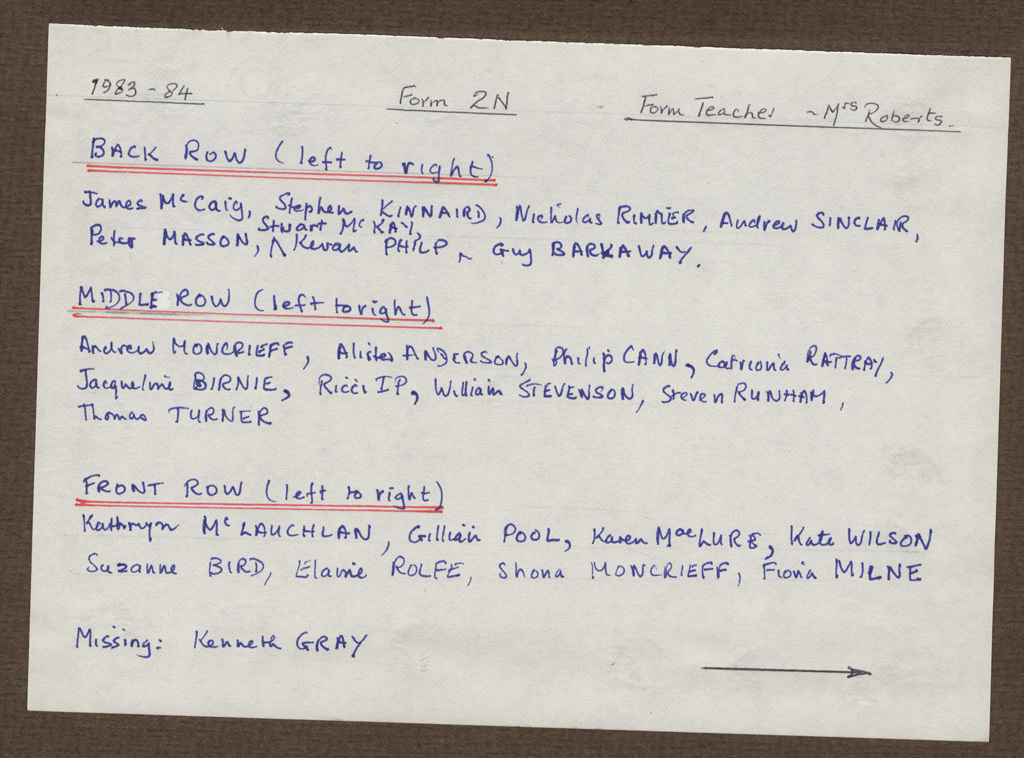 1983 - 84 Form 2N Form Teacher ~ Mrs Roberts.
BACK ROW (left to right)
James McCaig, Stephen KINNAIRD, Nicholas RIMMER, Andrew SINCLAIR,
Stuart McKAY,
Peter MASSON, Kevan PHILP, Guy BARKAWAY.
MIDDLE ROW (left to right)
Andrew MONCRIEFF, Alister ANDERSON, Philip CANN, Catriona RATTRAY,
Jacqueline BIRNIE, Ricci IP, William STEVENSON, Steven RUNHAM,
Thomas TURNER
FRONT ROW (left to right)
Kathryn McLAUCHLAN, Gillian POOL, Karen MacLURE, Kate WILSON
Suzanne BIRD, Elaine ROLFE, Shona MONCRIEFF, Fiona MILNE
Missing: Kenneth GRAY